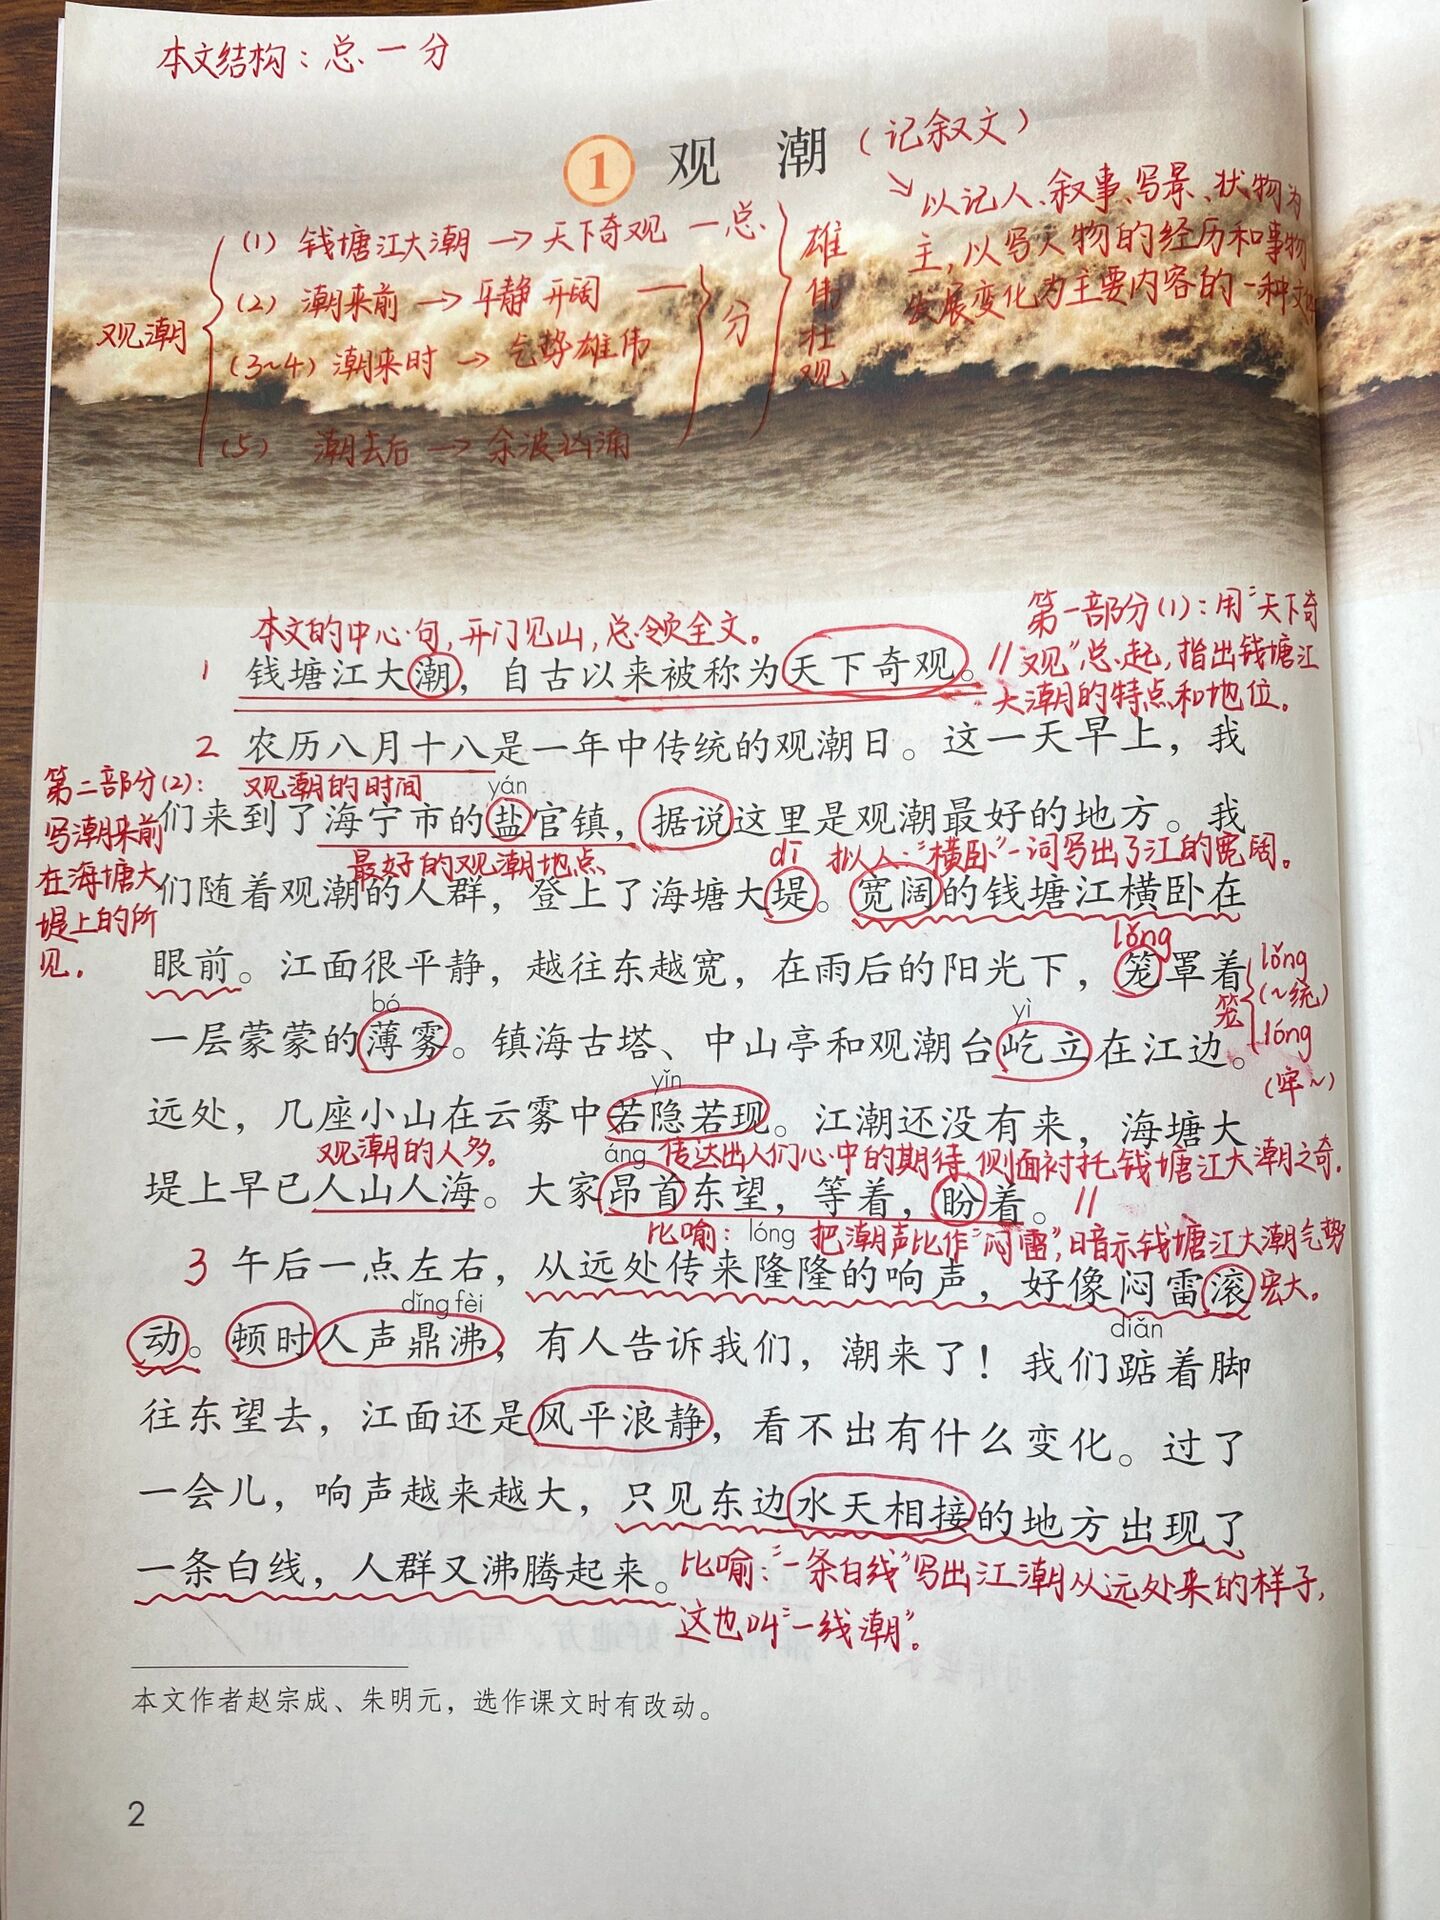 本文结构：总一分
1 观 潮（记叙文）
↘以记人、叙事、写景、状物为
主，以写人物的经历和事物
发展变化为主要内容的一种文体
观潮
(1) 钱塘江大潮→天下奇观 一总
(2) 潮来前→平静开阔 一
(3~4) 潮来时→气势雄伟
(5) 潮去后→余波汹涌
分
雄伟壮观
本文的中心句，开门见山，总领全文。
第一部分(1)：用“天下奇
观”总起，指出钱塘江
大潮的特点和地位。
1 钱塘江大潮，自古以来被称为天下奇观。//
2 农历八月十八是一年中传统的观潮日。这一天早上，我
第二部分(2)：
写潮来前
在海塘大
堤上的所
见。
观潮的时间
yán
们来到了海宁市的盐官镇，据说这里是观潮最好的地方。我
最好的观潮地点
dī 拟人：“横卧”一词写出了江的宽阔。
们随着观潮的人群，登上了海塘大堤。宽阔的钱塘江横卧在
lǒng
眼前。江面很平静，越往东越宽，在雨后的阳光下，笼罩着
笼
lǒng
(~统)
lóng
(牢~)
bó yì
一层蒙蒙的薄雾。镇海古塔、中山亭和观潮台屹立在江边。
yǐn
远处，几座小山在云雾中若隐若现。江潮还没有来，海塘大
观潮的人多。
áng 传达出人们心中的期待，侧面衬托钱塘江大潮之奇。
堤上早已人山人海。大家昂首东望，等着，盼着。//
比喻： lóng 把潮声比作“闷雷”，暗示钱塘江大潮气势
宏大。
3 午后一点左右，从远处传来隆隆的响声，好像闷雷滚
dǐng fèi
动。顿时人声鼎沸，有人告诉我们，潮来了！我们踮着脚
diǎn
往东望去，江面还是风平浪静，看不出有什么变化。过了
一会儿，响声越来越大，只见东边水天相接的地方出现了
一条白线，人群又沸腾起来。
比喻：“一条白线”写出江潮从远处来的样子，
这也叫“一线潮”。
本文作者赵宗成、朱明元，选作课文时有改动。
2